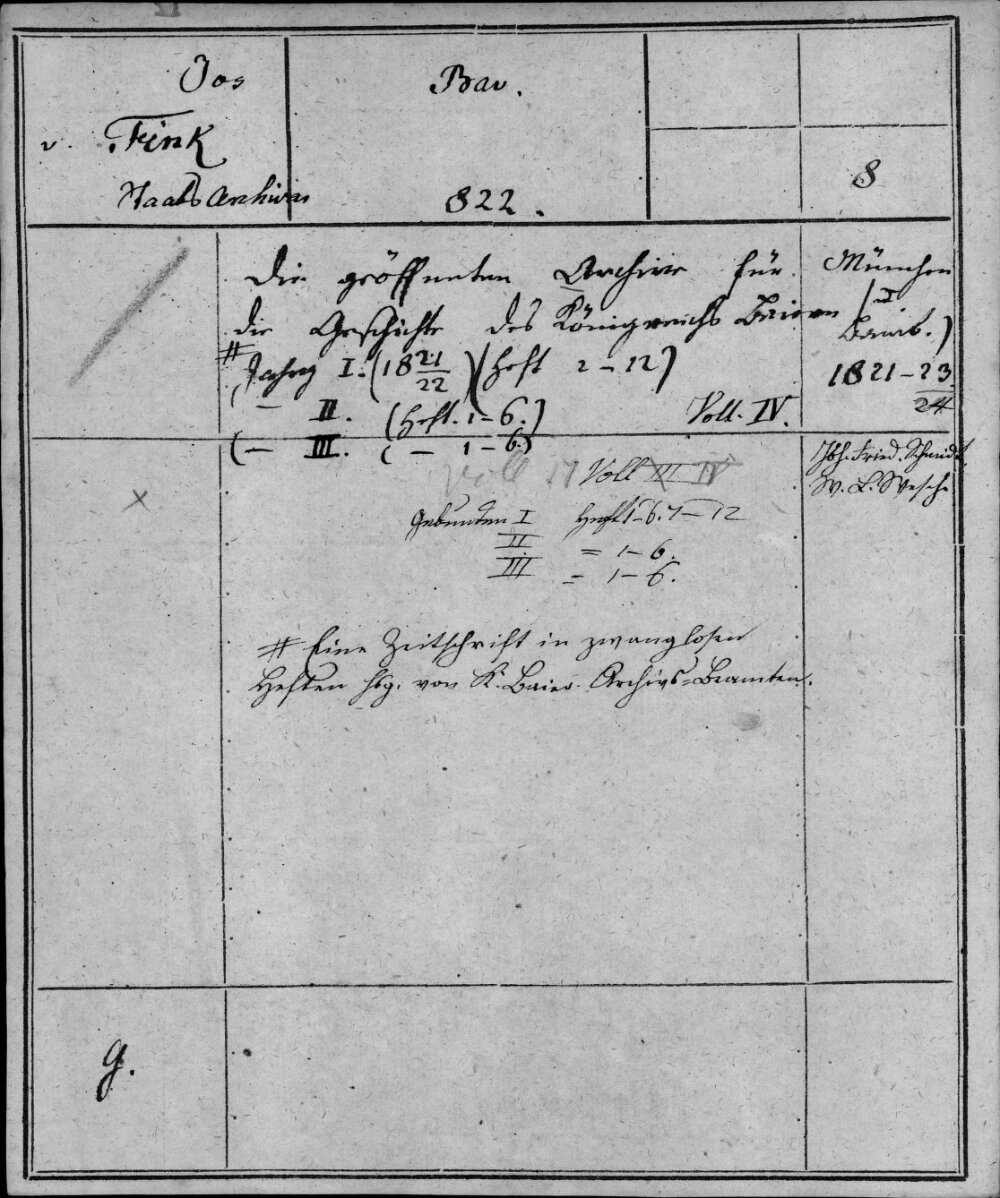 Jos
v. Fink
Staats Archivar
Bav.
822.
8
Die geöffneten Archive für
die Geschichte des Königreichs Baiern
# Jahrg I. (18 21/22) (Heft 2-12)
— II. (Heft. 1-6.) Voll. IV.
(— III. (— 1-6.)
München
(u
Bamb.)
1821-23
24
Joh. Fried. Schmidt
W. L. Wesche
Voll IV Voll III IV
Gebunden I Heft 1-6. 7-12
II = 1-6.
III = 1-6.
# Eine Zeitschrift in zwanglosen
Heften hsg. von K. Baier. Archivs-Beamten.
g.